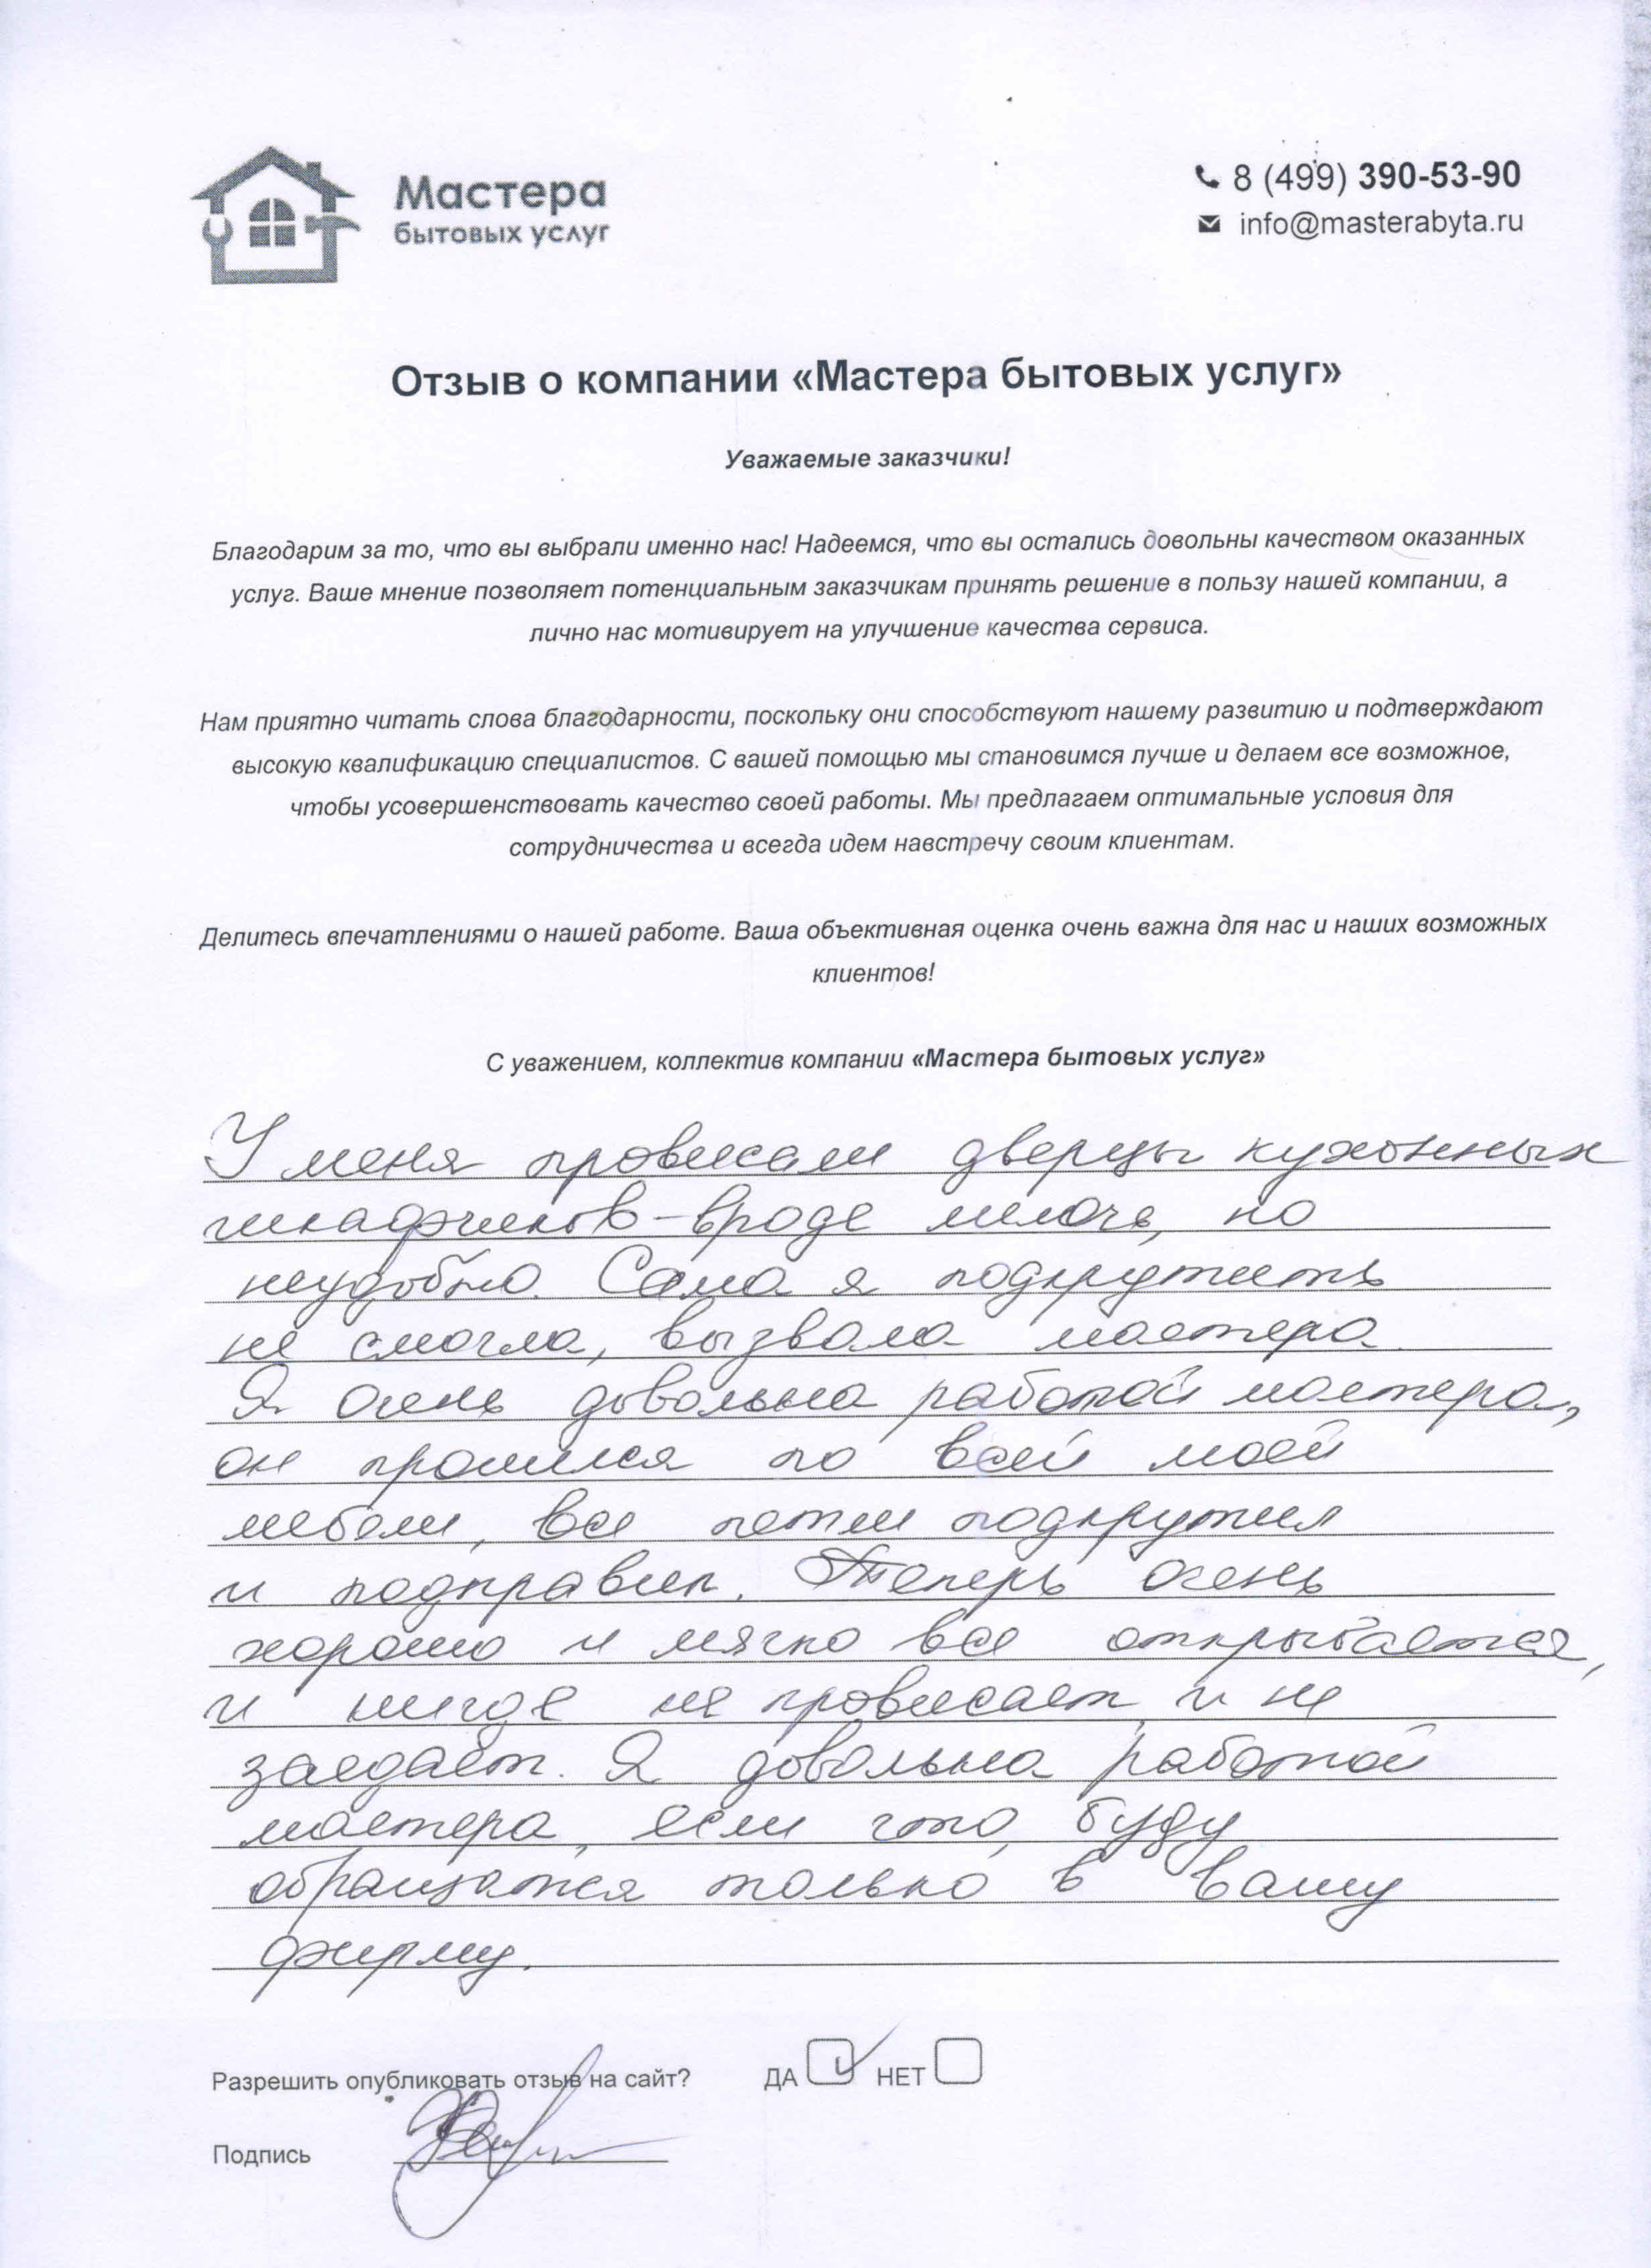 Мастера
бытовых услуг
8 (499) 390-53-90
info@masterabyta.ru
Отзыв о компании «Мастера бытовых услуг»
Уважаемые заказчики!
Благодарим за то, что вы выбрали именно нас! Надеемся, что вы остались довольны качеством оказанных
услуг. Ваше мнение позволяет потенциальным заказчикам принять решение в пользу нашей компании, а
лично нас мотивирует на улучшение качества сервиса.
Нам приятно читать слова благодарности, поскольку они способствуют нашему развитию и подтверждают
высокую квалификацию специалистов. С вашей помощью мы становимся лучше и делаем все возможное,
чтобы усовершенствовать качество своей работы. Мы предлагаем оптимальные условия для
сотрудничества и всегда идем навстречу своим клиентам.
Делитесь впечатлениями о нашей работе. Ваша объективная оценка очень важна для нас и наших возможных
клиентов!
С уважением, коллектив компании «Мастера бытовых услуг»
У меня провисали дверцы кухонных
шкафчиков - вроде мелочь, но
неудобно. Сама я подкрутить
не смогла, вызвала мастера.
Я очень довольна работой мастера,
он прошелся по всей моей
мебели, все петли подкрутил
и подправил. Теперь очень
хорошо и мягко все открывается,
и нигде не провисает и не
заедает. Я довольна работой
мастера, если что, буду
обращатся только в вашу
фирму.
Разрешить опубликовать отзыв на сайт? ДА НЕТ
Подпись